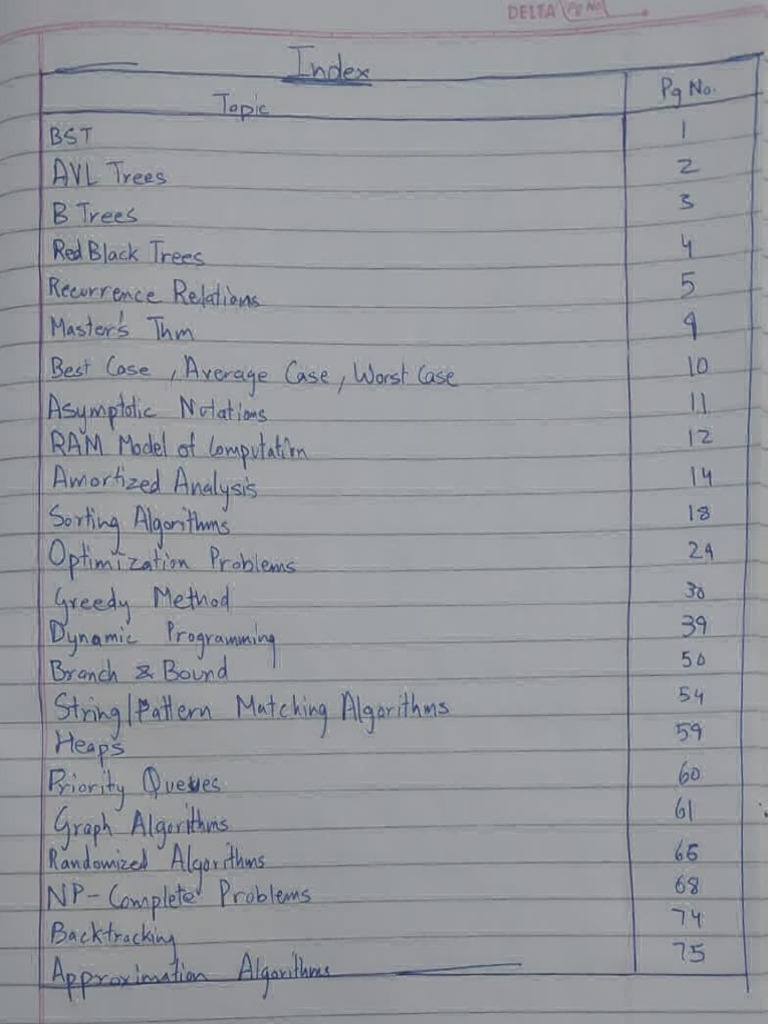 DELTA Pg No.
Index
Topic Pg No.
BST 1
AVL Trees 2
B Trees 3
Red Black Trees 4
Recurrence Relations 5
Master's Thm 9
Best Case , Average Case , Worst Case 10
Asymptotic Notations 11
RAM Model of Computation 12
Amortized Analysis 14
Sorting Algorithms 18
Optimization Problems 29
Greedy Method 30
Dynamic Programming 39
Branch & Bound 50
String/Pattern Matching Algorithms 54
Heaps 59
Priority Queues 60
Graph Algorithms 61
Randomized Algorithms 66
NP-Complete Problems 68
Backtracking 74
Approximation Algorithms 75